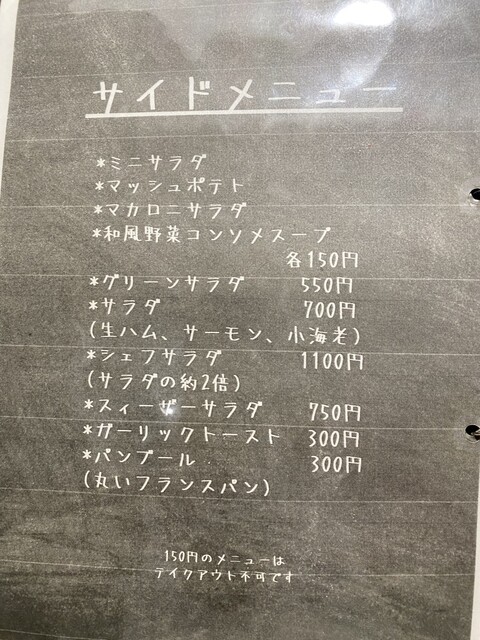 サイドメニュー
*ミニサラダ
*マッシュポテト
*マカロニサラダ
*和風野菜コンソメスープ
各150円
*グリーンサラダ 550円
*サラダ 700円
(生ハム、サーモン、小海老)
*シェフサラダ 1100円
(サラダの約2倍)
*スィーザーサラダ 750円
*ガーリックトースト 300円
*パンブール 300円
(丸いフランスパン)
150円のメニューは
テイクアウト不可です